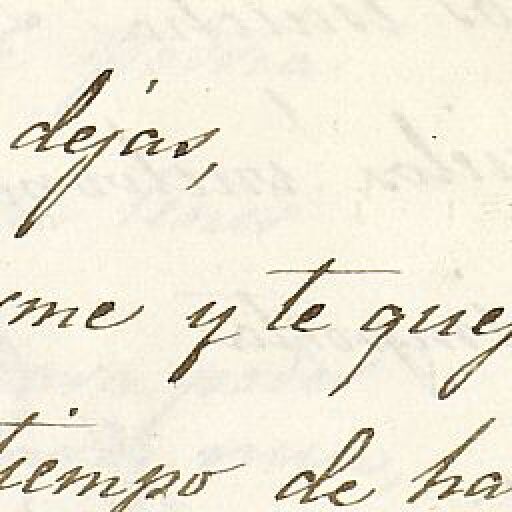 dejas,
rme y te quej
tiempo de ha